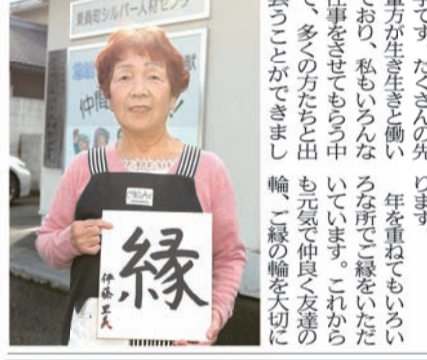 東員町シルバー人材センター
仲間
縁
伊藤
字です。たくさんの先
輩方が生き生きと働い
ており、私もいろんな
仕事をさせてもらう中
で、多くの方たちと出
会うことができまし
ります。
年を重ねてもいろい
ろな所でご縁をいただ
いています。これから
も元気で仲良く友達の
輪、ご縁の輪を大切に